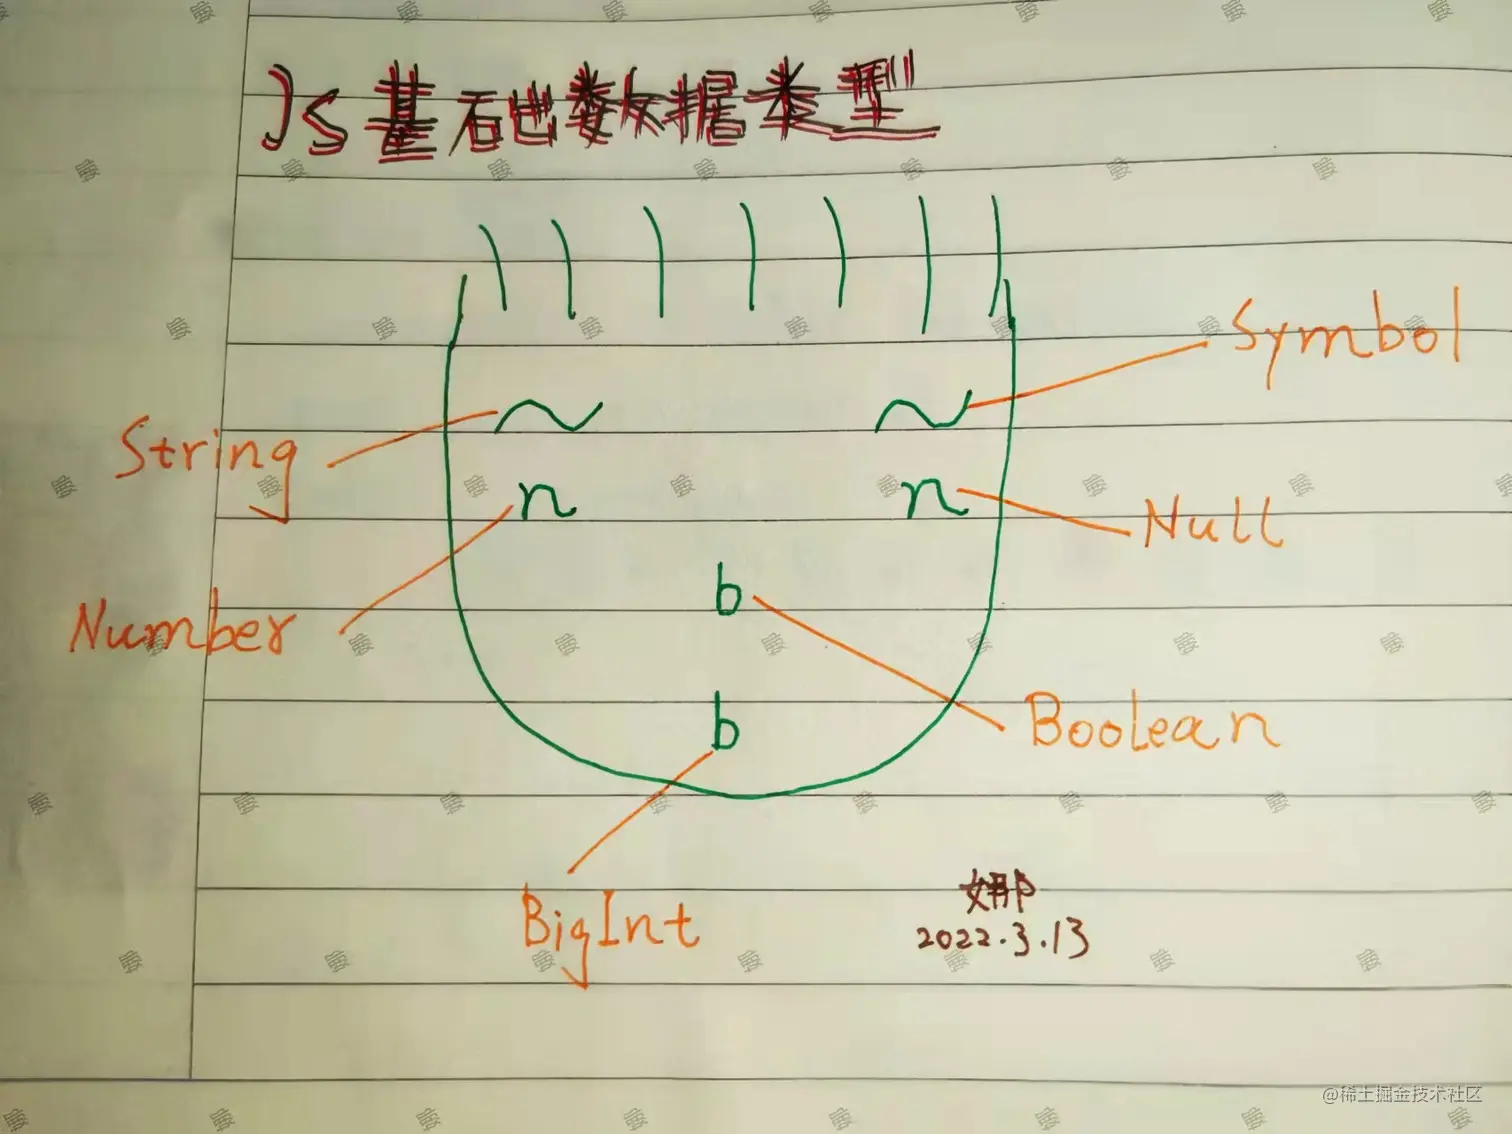 JS基础数据类型
Symbol
String
n
n
Null
Number
b
b
Boolean
BigInt
娜
2022.3.13
@稀土掘金技术社区